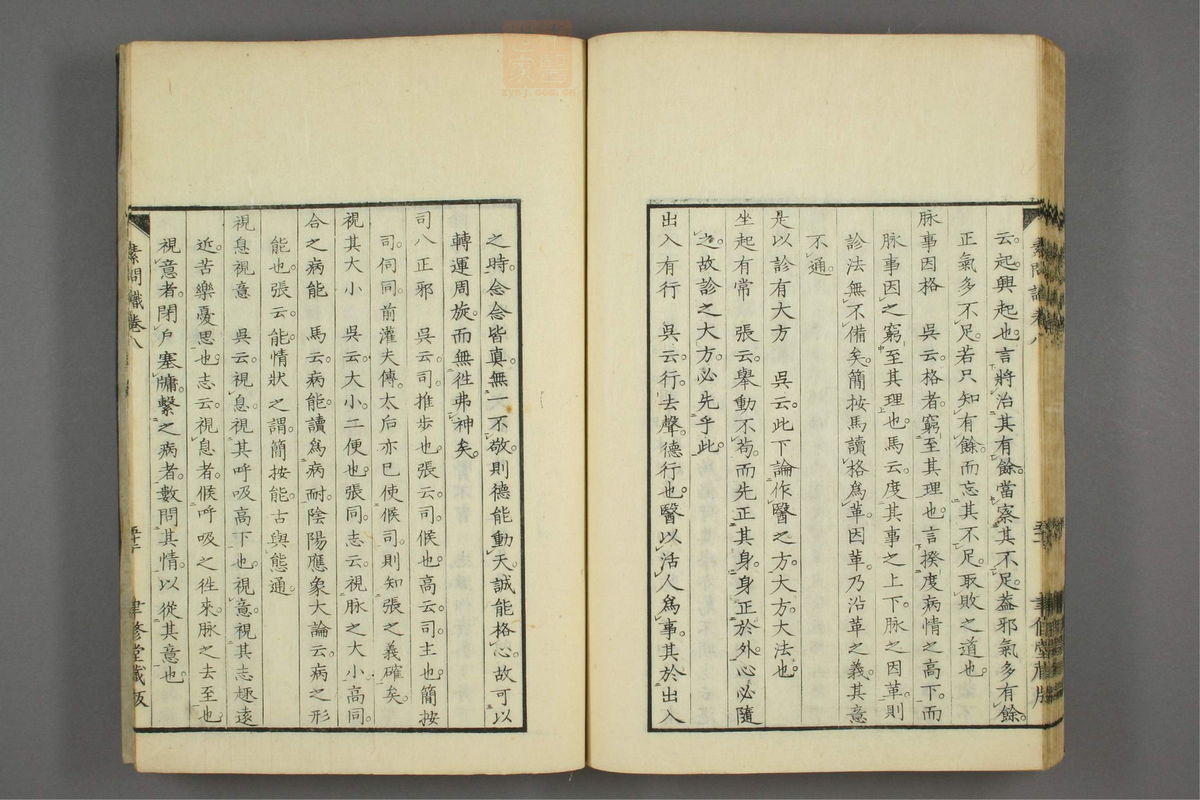 素問識卷八
云。起興起也。言將治其有餘。當察其不足。蓋邪氣多有餘。
正氣多不足。若只知有餘。而忘其不足。取敗之道也。
脉事因格　吳云。格者。窮至其理也。言揆度病情之高下。而
脉事因之窮至其理也。馬云。度其事之上下。脉之因革。則
診法無不備矣。簡按馬讀格爲革。因革。乃沿革之義。其意
不通。
是以診有大方　吳云。此下論作醫之方。大方。大法也。
坐起有常　張云。舉動不苟。而先正其身。身正於外。心必隨
之。故診之大方。必先乎此。
出入有行　吳云。行。去聲。德行也。醫以活人爲事。其於出入
之時。念念皆真。無一不敬。則德能動天。誠能格心。故可以
轉運周旋。而無徃弗神矣。
司八正邪　吳云。司。推步也。張云。司。候也。高云。司。主也。簡按
司。伺同。前灌夫傳。太后亦已使候司。則知張之義確矣。
視其大小　吳云。大小。二便也。張同。志云。視脉之大小。高同。
合之病能　馬云。病能。讀爲病耐。陰陽應象大論云。病之形
能也。張云。能。情狀之謂。簡按能。古與態通。
視息視意　吳云。視息。視其呼吸高下也。視意。視其志趣遠
近苦樂憂思也。志云。視息者。候呼吸之徃來。脉之去至也。
視意者。閉戶塞牖。繫之病者。數問其情。以從其意也。
素問識卷八
聿修堂藏版